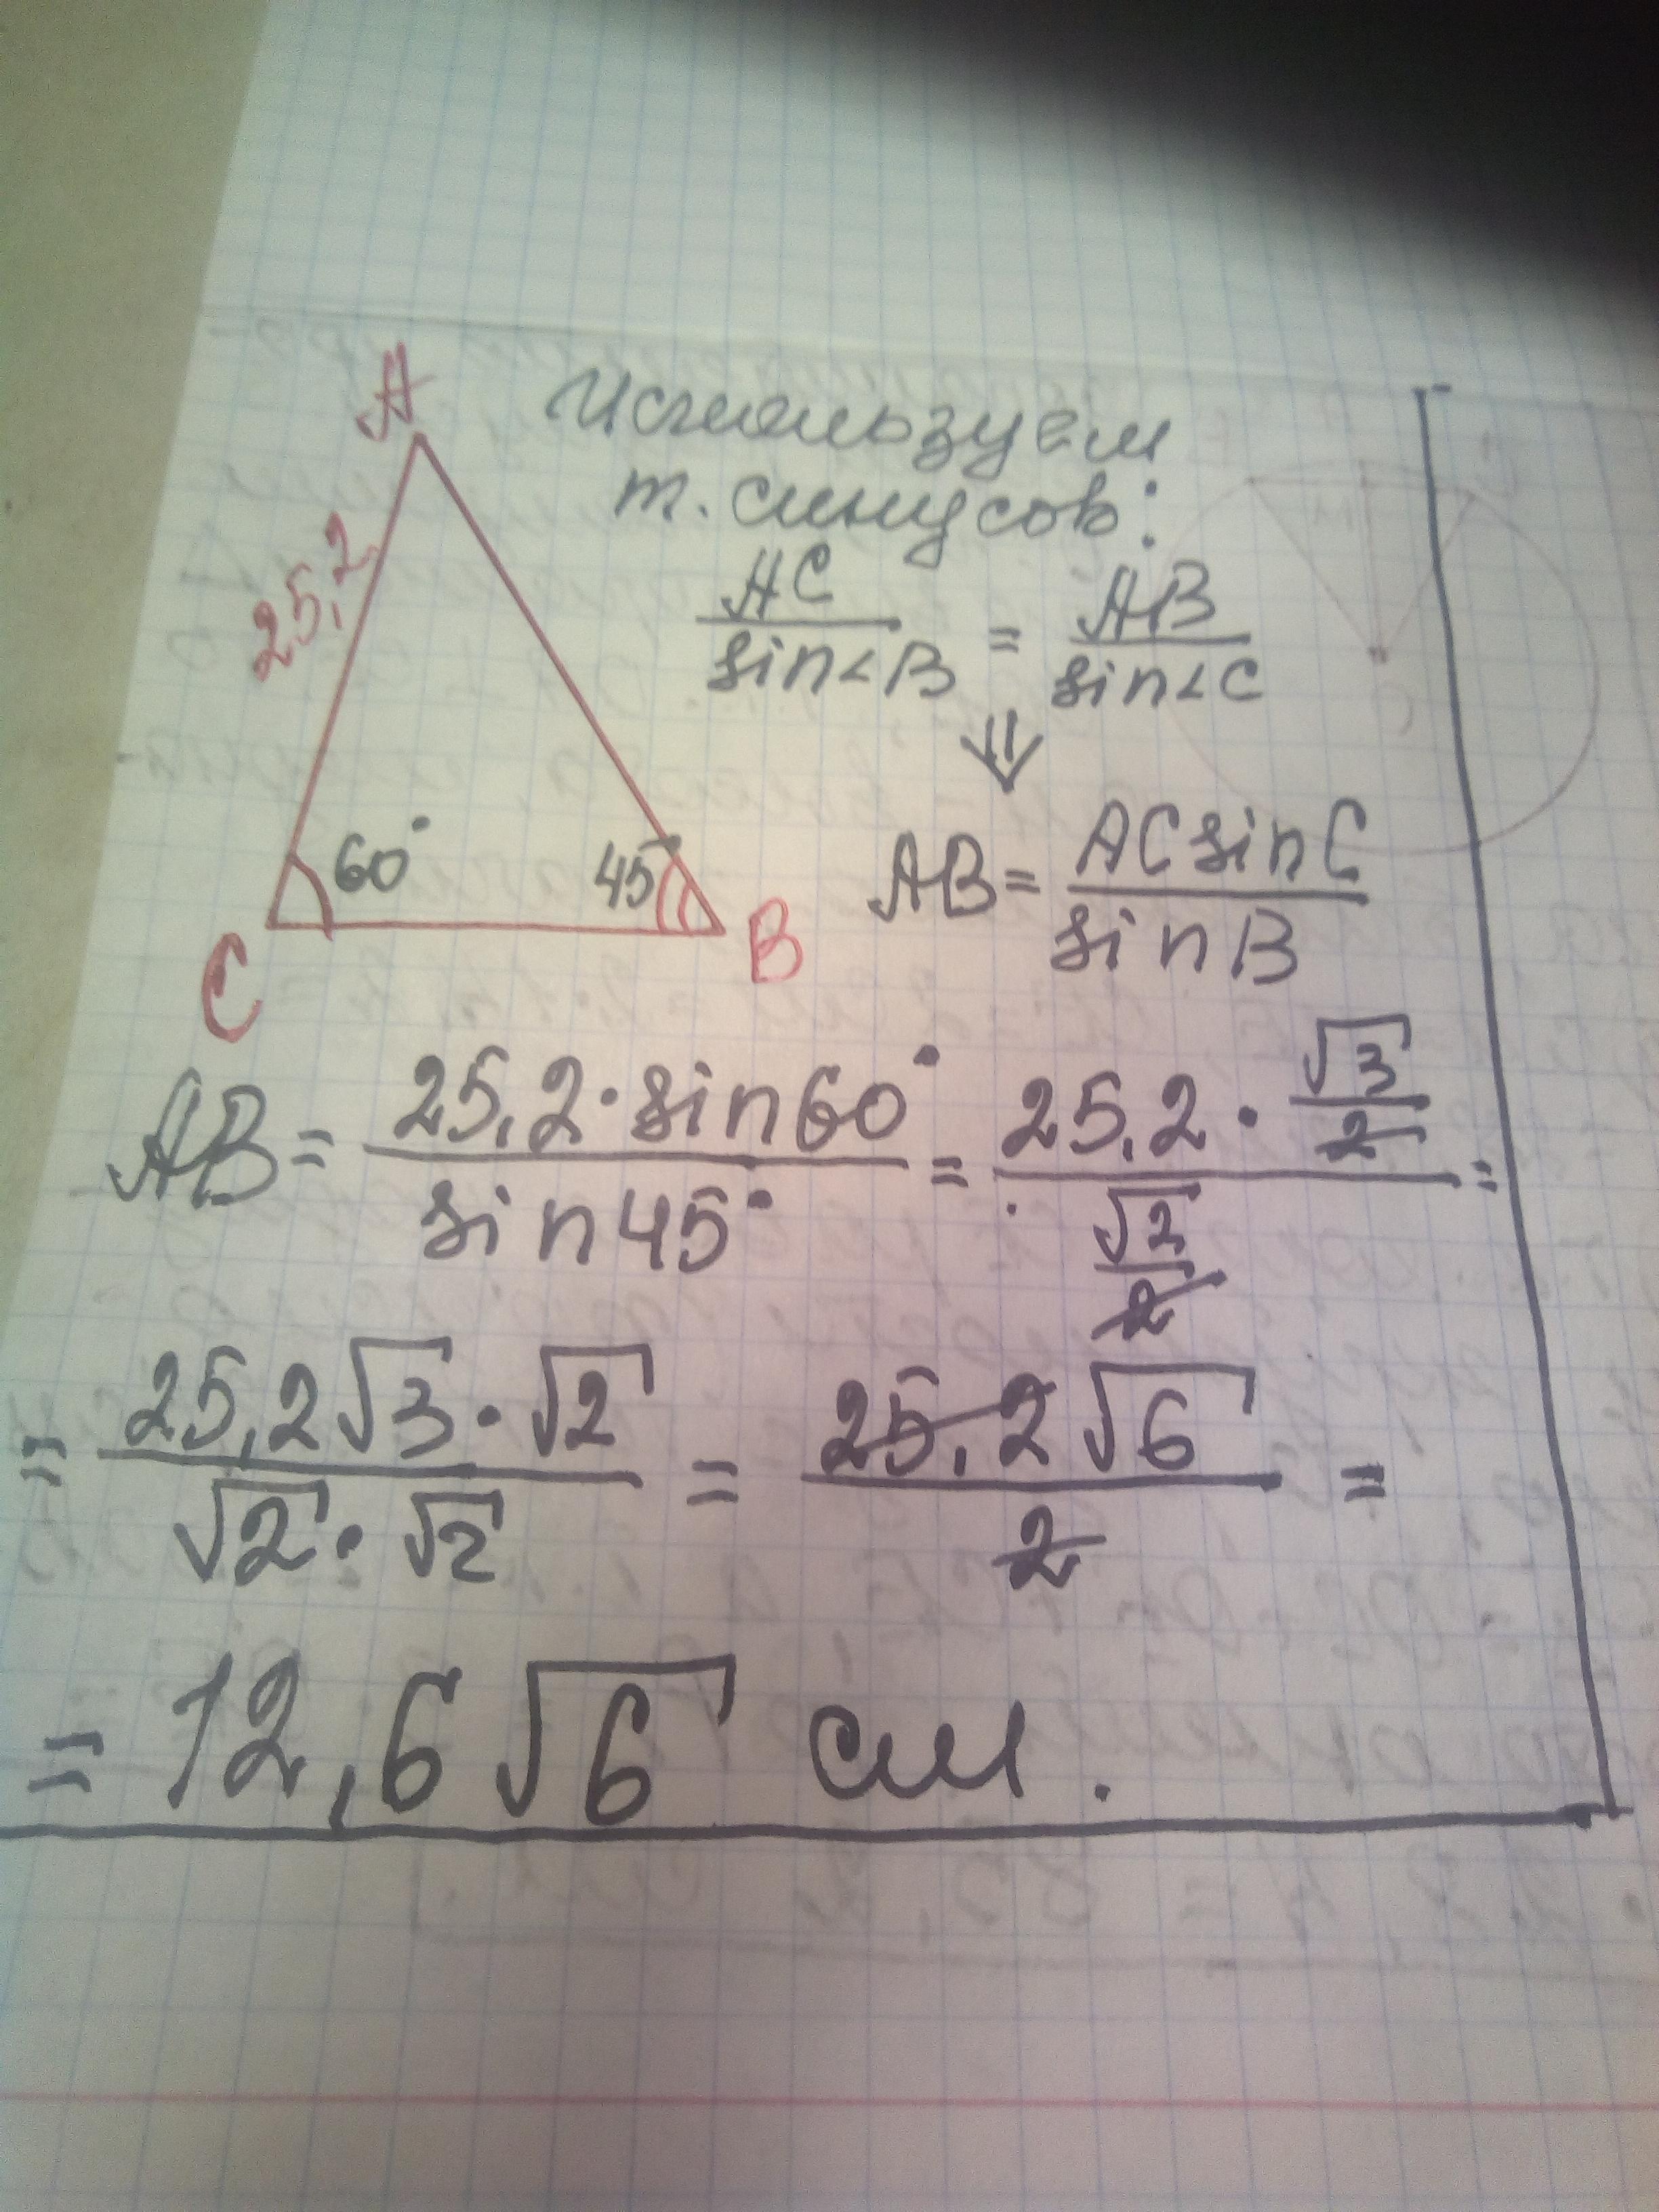 A
Используем
т. синусов:
25,2
AC/sin∠B = AB/sin∠C
⇓
60° 45°
AB = ACsinC/sinB
C B
AB = 25,2·sin60°/sin45° = 25,2·(√3/2)/(√2/2) =
= 25,2√3·√2/√2·√2 = 25,2√6/2 =
= 12,6√6 см.